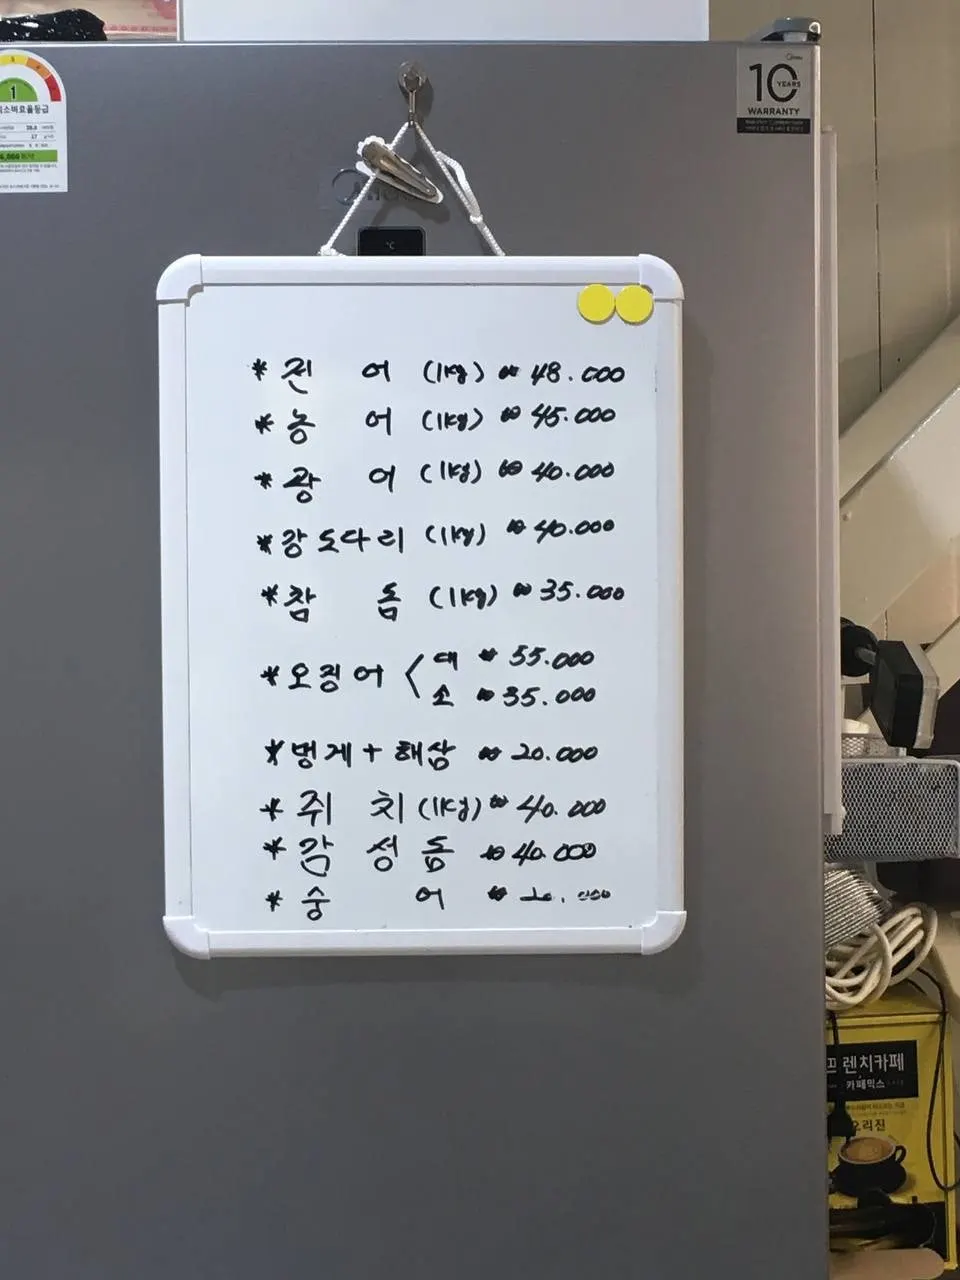 1
소비효율등급
10 YEARS
WARRANTY
°C
* 전 어 (1kg) ₩ 48.000
* 농 어 (1kg) ₩ 45.000
* 광 어 (1kg) ₩ 40.000
* 강도다리 (1kg) ₩ 40.000
* 참 돔 (1kg) ₩ 35.000
* 오징어 < 대 ₩ 55.000
소 ₩ 35.000
* 멍게 + 해삼 ₩ 20.000
* 쥐 치 (1kg) ₩ 40.000
* 감 성 돔 ₩ 40.000
* 숭 어 ₩
프렌치카페
카페믹스
오리진